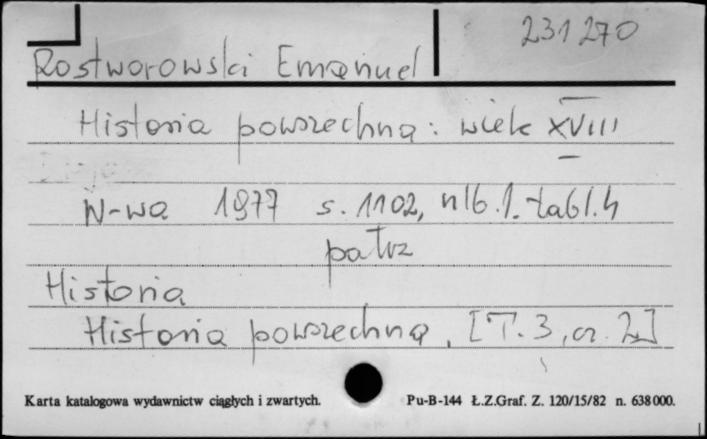 231 270
Rostworowski Emanuel
Historia powszechna: wiek XVIII
W-wa 1977 s. 1102, nlb. 1. tabl. 4
patrz
Historia
Historia powszechna, [T. 3, cz. 2]
Karta katalogowa wydawnictw ciągłych i zwartych. Pu-B-144 Ł.Z.Graf. Z. 120/15/82 n. 638000.